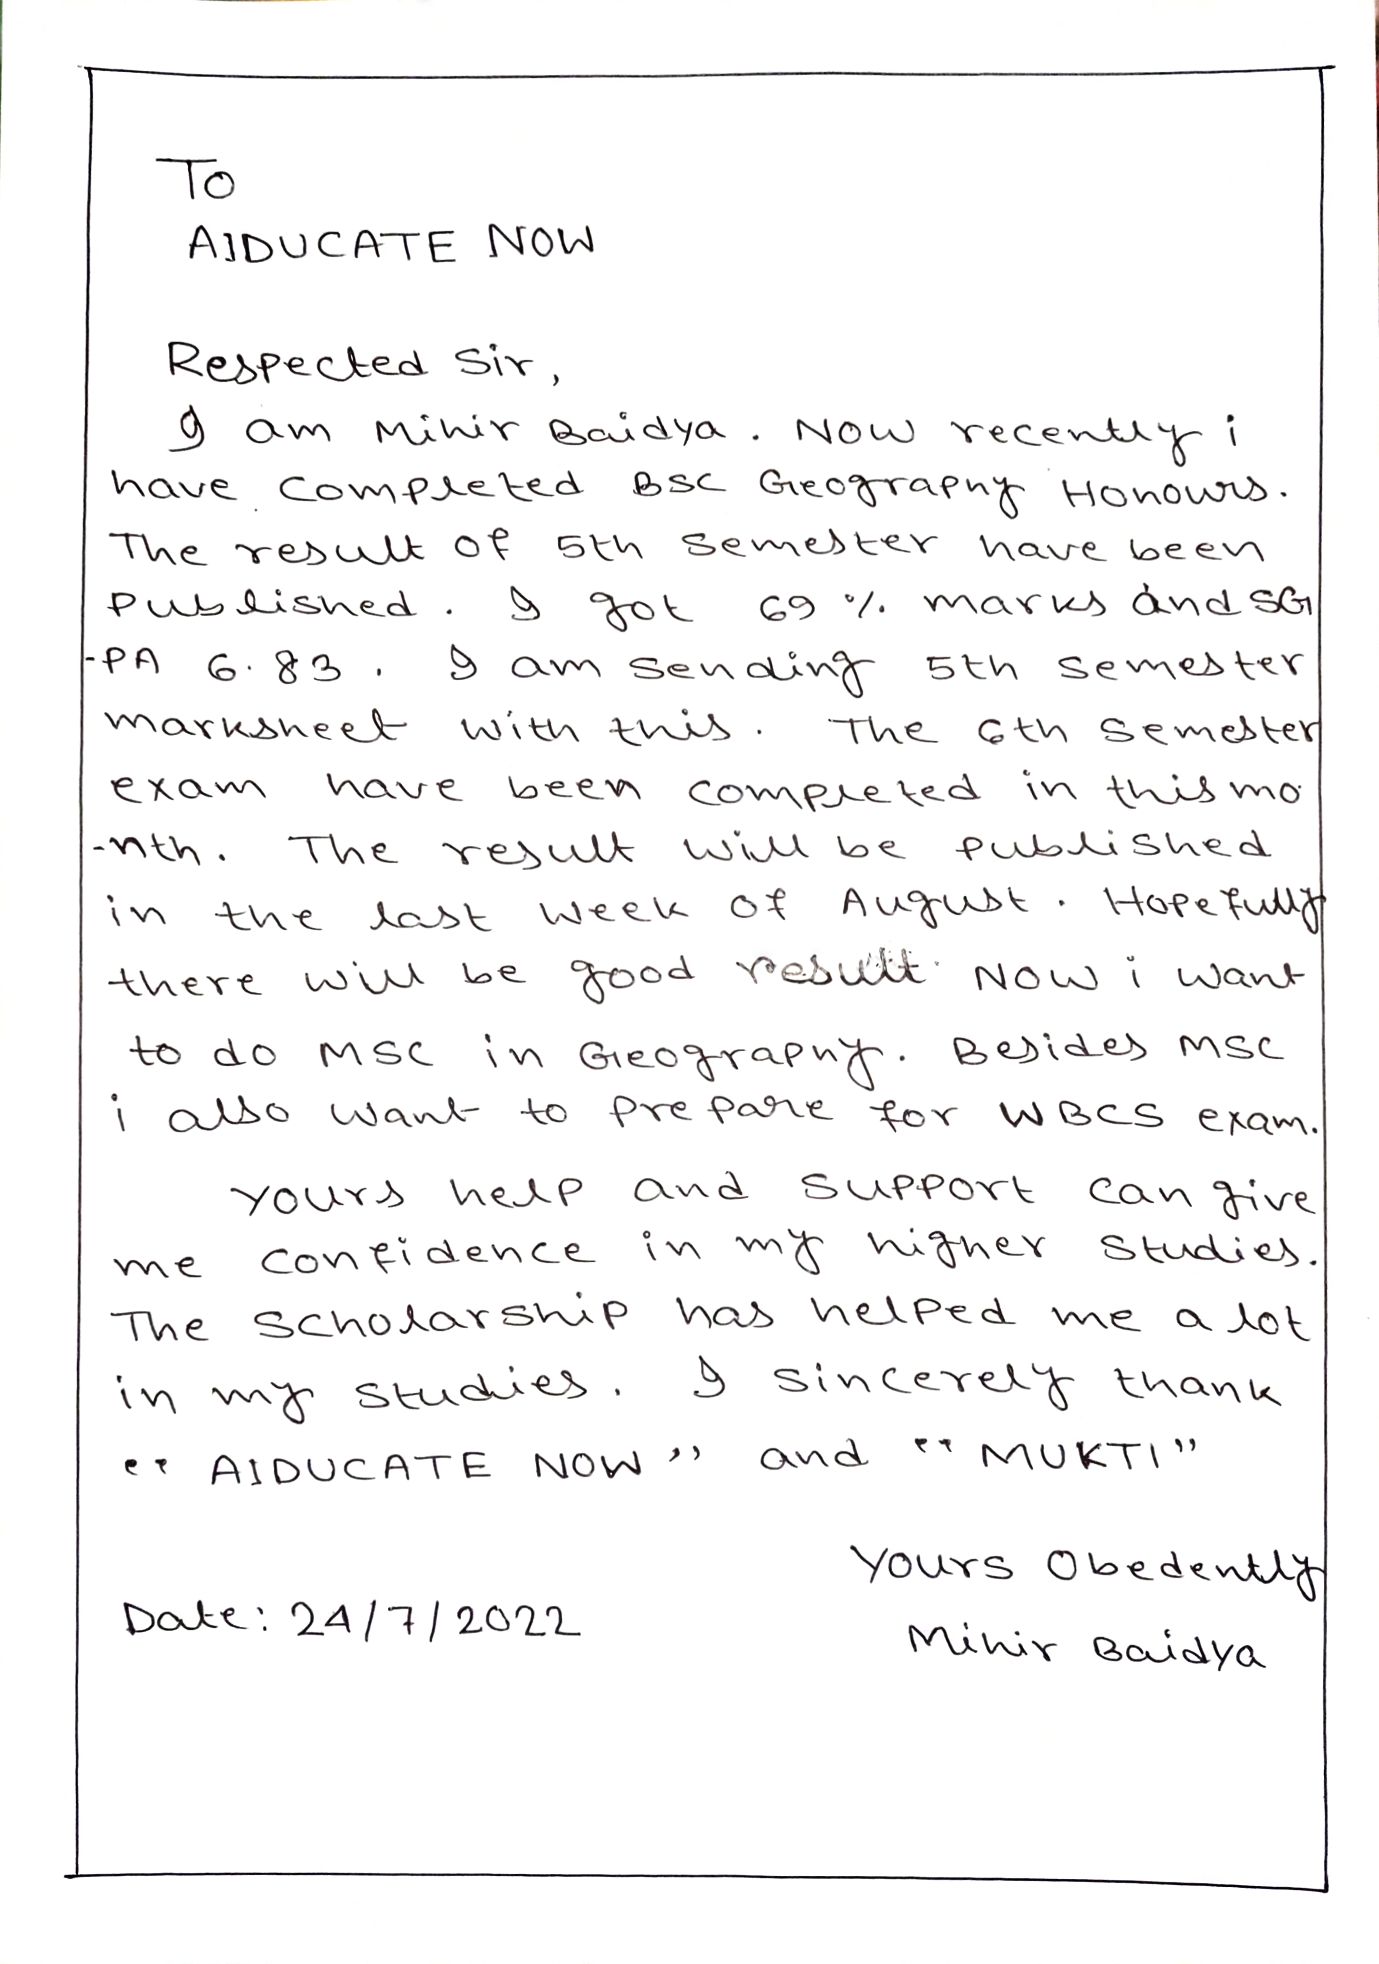 To
AIDUCATE NOW
Respected Sir,
I am Mihir Baidya. Now recently i
have completed BSC Geography Honours.
The result of 5th semester have been
published. I got 69 % marks and SG
-PA 6.83. I am sending 5th semester
marksheet with this. The 6th semester
exam have been completed in this mo
-nth. The result will be published
in the last week of August. Hopefully
there will be good result. Now i want
to do MSC in Geography. Besides MSC
i also want to prepare for WBCS exam.
Yours help and support can give
me confidence in my higher studies.
The scholarship has helped me a lot
in my studies. I sincerely thank
"AIDUCATE NOW" and "MUKTI"
Yours Obedently
Date: 24/7/2022
Mihir Baidya